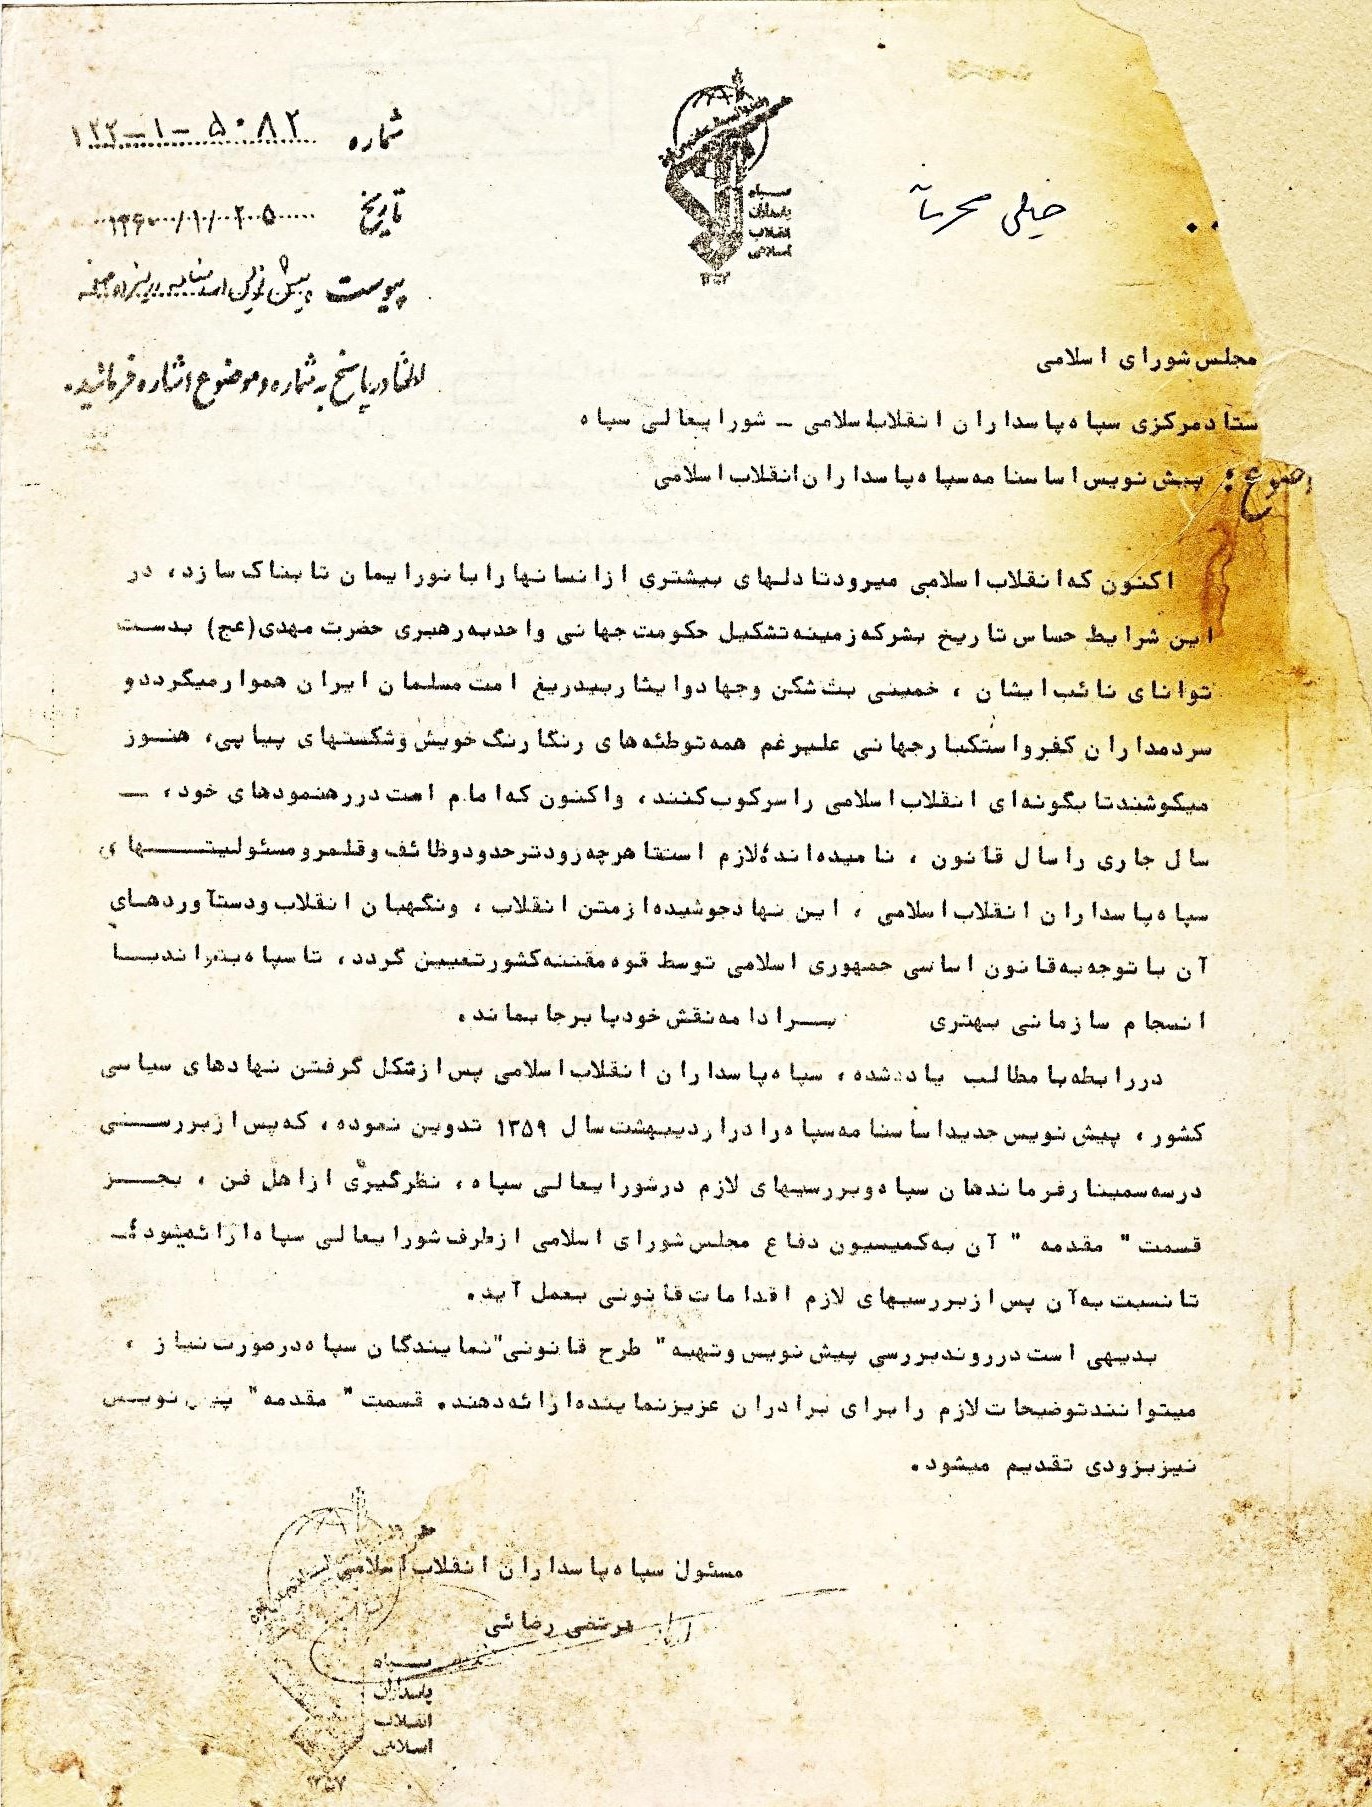 شماره ۱۲۲-۱-۵۰۸۲
تاریخ ۱۳۶۰/۱/۲۵
پیوست پیش نویس اساسنامه
لطفا در پاسخ به شماره و موضوع اشاره فرمائید.
سپاه
پاسداران
انقلاب
اسلامی
۱۳۵۷
خیلی محرمانه
مجلس شورای اسلامی
ستاد مرکزی سپاه پاسداران انقلاب اسلامی ـ شورایعالی سپاه
پیش نویس اساسنامه سپاه پاسداران انقلاب اسلامی
اکنون که انقلاب اسلامی میرود تا دلهای بیشتری از انسانها را با نور ایمان تابناک سازد، در
این شرایط حساس تاریخ بشر که زمینه تشکیل حکومت جهانی واحد به رهبری حضرت مهدی(عج) بدست
توانای نائب ایشان ، خمینی بت شکن وجهاد و ایثار بیدریغ امت مسلمان ایران هموار میگردد و
سردمداران کفر و استکبار جهانی علیرغم همه توطئه های رنگارنگ خویش و شکستهای پیاپی، هنوز
میکوشند تا بگونه ای انقلاب اسلامی را سرکوب کنند، و اکنون که امام امت در رهنمودهای خود، ـ
سال جاری را سال قانون ، نامیده اند، لازم است تا هر چه زودتر حدود وظائف و قلمرو مسئولیتهای
سپاه پاسداران انقلاب اسلامی ، این نهاد جوشیده از متن انقلاب ، و نگهبان انقلاب و دستآوردهای
آن با توجه به قانون اساسی جمهوری اسلامی توسط قوه مقننه کشور تعیین گردد، تا سپاه بتواند با
انسجام سازمانی بهتری بر ادامه نقش خود پا برجا بماند.
در رابطه با مطالب یاد شده ، سپاه پاسداران انقلاب اسلامی پس از شکل گرفتن نهادهای سیاسی
کشور ، پیش نویس جدید اساسنامه سپاه را در اردیبهشت سال ۱۳۵۹ تدوین نموده ، که پس از بررسی
در سه سمینار فرماندهان سپاه و بررسیهای لازم در شورایعالی سپاه ، نظرگیری از اهل فن ، بجز
قسمت " مقدمه " آن به کمیسیون دفاع مجلس شورای اسلامی از طرف شورایعالی سپاه ارائه میشود،ـ
تا نسبت به آن پس از بررسیهای لازم اقدامات قانونی بعمل آید.
بدیهی است در روند بررسی پیش نویس و تهیه " طرح قانونی" نمایندگان سپاه در صورت نیاز ،
میتوانند توضیحات لازم را برای برادران عزیز نماینده ارائه دهند. قسمت " مقدمه " پیش نویس
نیز بزودی تقدیم میشود.
مسئول سپاه پاسداران انقلاب اسلامی
مرتضی رضائی
سپاه
پاسداران
انقلاب
اسلامی
۱۳۵۷